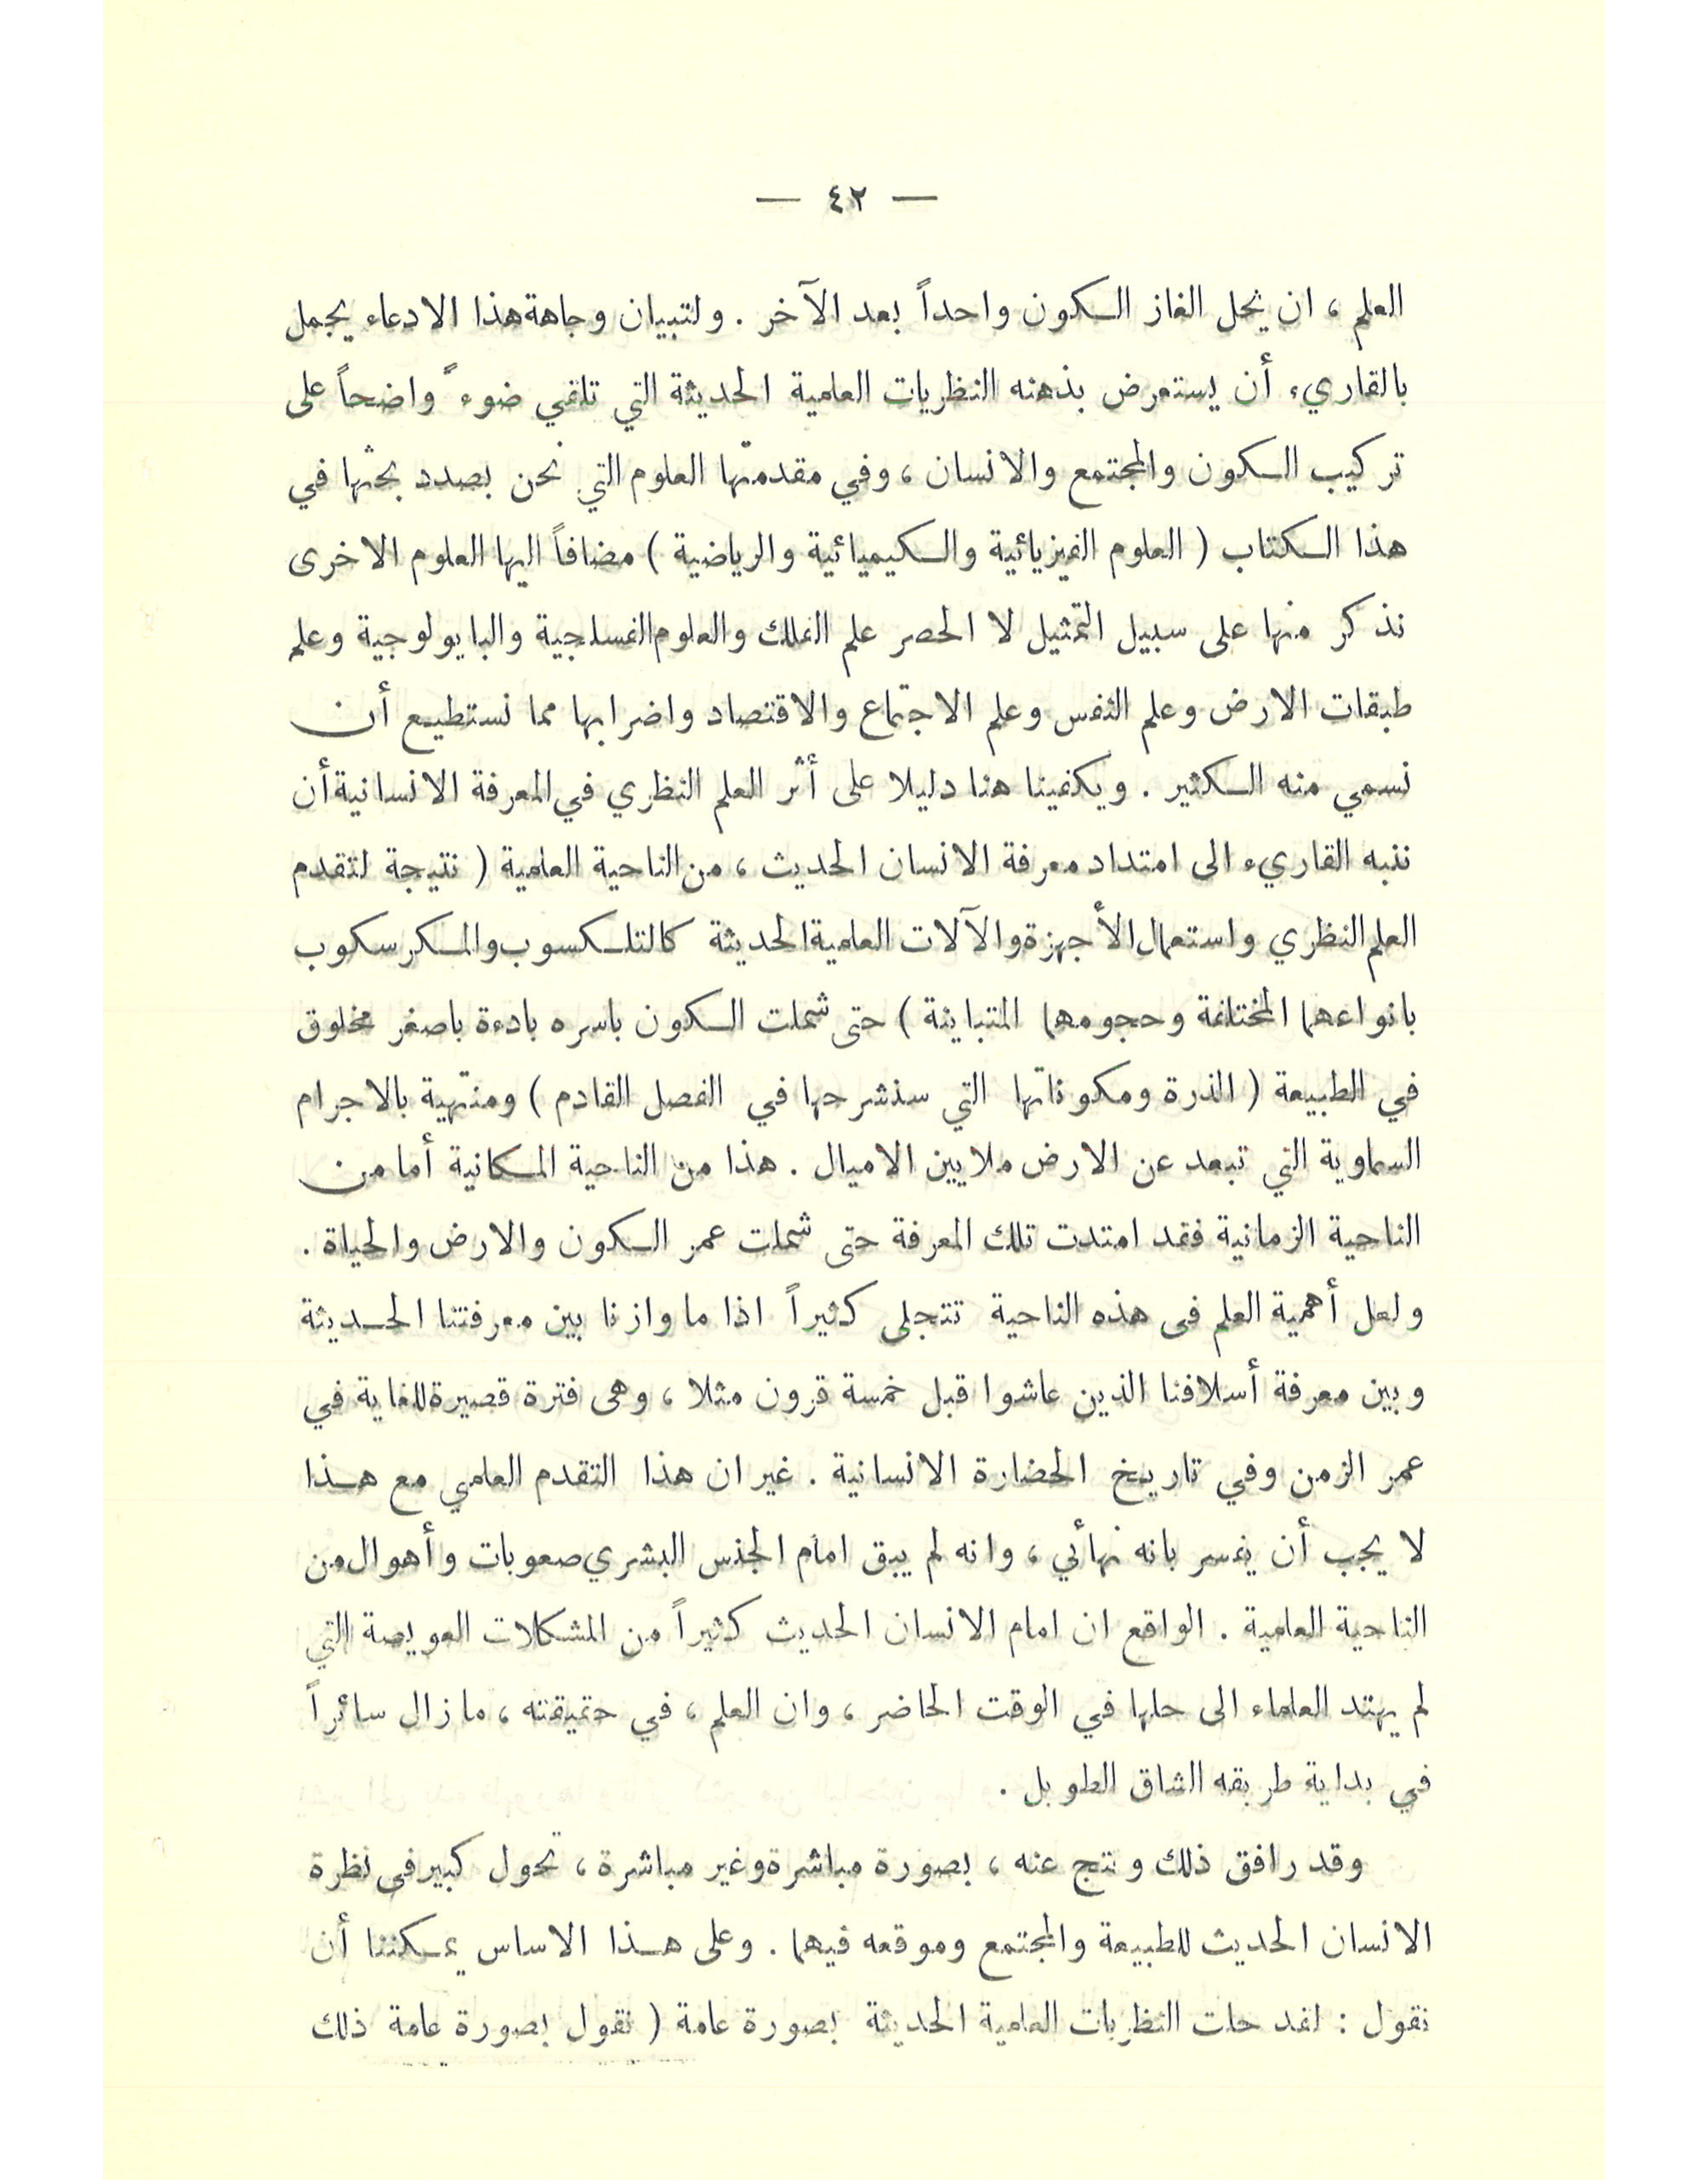 — ٤٢ —
العلم ، ان يحل الغاز الكون واحداً بعد الآخر . ولتبيان وجاهة هذا الادعاء يجمل
بالقاريء أن يستعرض بذهنه النظريات العلمية الحديثة التي تلقي ضوءً واضحاً على
تركيب الكون والمجتمع والانسان ، وفي مقدمتها العلوم التي نحن بصدد بحثها في
هذا الكتاب ( العلوم الفيزيائية والكيميائية والرياضية ) مضافاً اليها العلوم الاخرى
نذكر منها على سبيل التمثيل لا الحصر علم الفلك والعلوم الفسلجية والبايولوجية وعلم
طبقات الارض وعلم النفس وعلم الاجتماع والاقتصاد واضرابها مما نستطيع أن
نسمي منه الكثير . ويكفينا هنا دليلا على أثر العلم النظري في المعرفة الانسانية أن
ننبه القاريء الى امتداد معرفة الانسان الحديث ، من الناحية العلمية ( نتيجة لتقدم
العلم النظري واستعمال الأجهزة والآلات العلمية الحديثة كالتلسكسوب والمكرسكوب
بانواعهما المختلفة وحجومهما المتباينة ) حتى شملت الكون باسره بادءة باصغر مخلوق
في الطبيعة ( الذرة ومكوناتها التي سنشرحها في الفصل القادم ) ومنتهية بالاجرام
السماوية التي تبعد عن الارض ملايين الاميال . هذا من الناحية المكانية أما من
الناحية الزمانية فقد امتدت تلك المعرفة حتى شملت عمر الكون والارض والحياة .
ولعل أهمية العلم فى هذه الناحية تتجلى كثيراً اذا ما وازنا بين معرفتنا الحديثة
وبين معرفة أسلافنا الذين عاشوا قبل خمسة قرون مثلا ، وهى فترة قصيرة للغاية في
عمر الزمن وفي تاريخ الحضارة الانسانية . غير ان هذا التقدم العلمي مع هذا
لا يجب أن يفسر بانه نهائي ، وانه لم يبق امام الجنس البشري صعوبات وأهوال من
الناحية العلمية . الواقع ان امام الانسان الحديث كثيراً من المشكلات العويصة التي
لم يهتد العلماء الى حلها في الوقت الحاضر ، وان العلم ، في حقيقته ، ما زال سائراً
في بداية طريقه الشاق الطويل .
وقد رافق ذلك ونتج عنه ، بصورة مباشرة وغير مباشرة ، تحول كبير فى نظرة
الانسان الحديث للطبيعة والمجتمع وموقعه فيهما . وعلى هذا الاساس يمكننا أن
نقول : لقد حلت النظريات العلمية الحديثة بصورة عامة ( نقول بصورة عامة ذلك